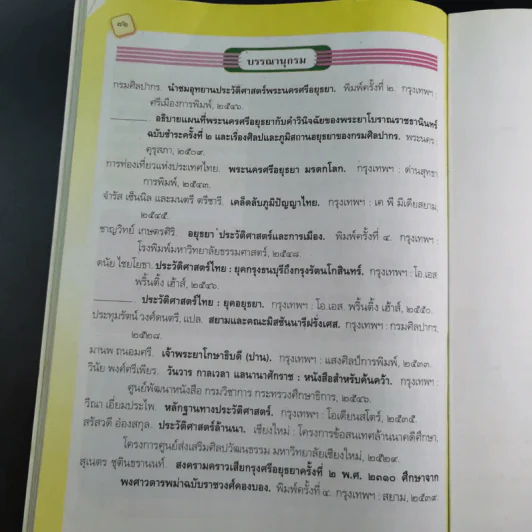 ๓๖
บรรณานุกรม
กรมศิลปากร. นำชมอุทยานประวัติศาสตร์พระนครศรีอยุธยา. พิมพ์ครั้งที่ ๒. กรุงเทพฯ :
ศรีเมืองการพิมพ์, ๒๕๔๖.
อธิบายแผนที่พระนครศรีอยุธยากับคำวินิจฉัยของพระยาโบราณราชธานินทร์
ฉบับชำระครั้งที่ ๒ และเรื่องศิลปและภูมิสถานอยุธยาของกรมศิลปากร. พระนคร :
คุรุสภา, ๒๕๐๙.
การท่องเที่ยวแห่งประเทศไทย. พระนครศรีอยุธยา มรดกโลก. กรุงเทพฯ : ด่านสุทธา
การพิมพ์, ๒๕๔๓.
จำรัส เซ็นนิล และมนตรี ตรีชารี. เคล็ดลับภูมิปัญญาไทย. กรุงเทพฯ : เค พี มีเดียสยาม,
๒๕๔๕.
ชาญวิทย์ เกษตรศิริ. อยุธยา ประวัติศาสตร์และการเมือง. พิมพ์ครั้งที่ ๔. กรุงเทพฯ :
โรงพิมพ์มหาวิทยาลัยธรรมศาสตร์, ๒๕๔๘.
ดนัย ไชยโยธา. ประวัติศาสตร์ไทย : ยุคกรุงธนบุรีถึงกรุงรัตนโกสินทร์. กรุงเทพฯ : โอ.เอส.
พริ้นติ้ง เฮ้าส์, ๒๕๔๖.
ประวัติศาสตร์ไทย : ยุคอยุธยา. กรุงเทพฯ : โอ.เอส. พริ้นติ้ง เฮ้าส์, ๒๕๕๐.
ประทุมรัตน์ วงศ์ดนตรี, แปล. สยามและคณะมิสชันนารีฝรั่งเศส. กรุงเทพฯ : กรมศิลปากร,
๒๕๒๘.
มานพ ถนอมศรี. เจ้าพระยาโกษาธิบดี (ปาน). กรุงเทพฯ : แสงศิลป์การพิมพ์, ๒๕๓๓.
วินัย พงศ์ศรีเพียร. วันวาร กาลเวลา แลนานาศักราช : หนังสือสำหรับค้นคว้า. กรุงเทพฯ :
ศูนย์พัฒนาหนังสือ กรมวิชาการ กระทรวงศึกษาธิการ, ๒๕๔๖.
วีณา เอี่ยมประไพ. หลักฐานทางประวัติศาสตร์. กรุงเทพฯ : โอเดียนสโตร์, ๒๕๓๕.
สรัสวดี อ๋องสกุล. ประวัติศาสตร์ล้านนา. เชียงใหม่ : โครงการข้อสนเทศล้านนาคดีศึกษา,
โครงการศูนย์ส่งเสริมศิลปวัฒนธรรม มหาวิทยาลัยเชียงใหม่, ๒๕๒๙.
สุเนตร ชุตินธรานนท์. สงครามคราวเสียกรุงศรีอยุธยาครั้งที่ ๒ พ.ศ. ๒๓๑๐ ศึกษาจาก
พงศาวดารพม่าฉบับราชวงศ์คองบอง. พิมพ์ครั้งที่ ๔. กรุงเทพฯ : สยาม, ๒๕๓๙.